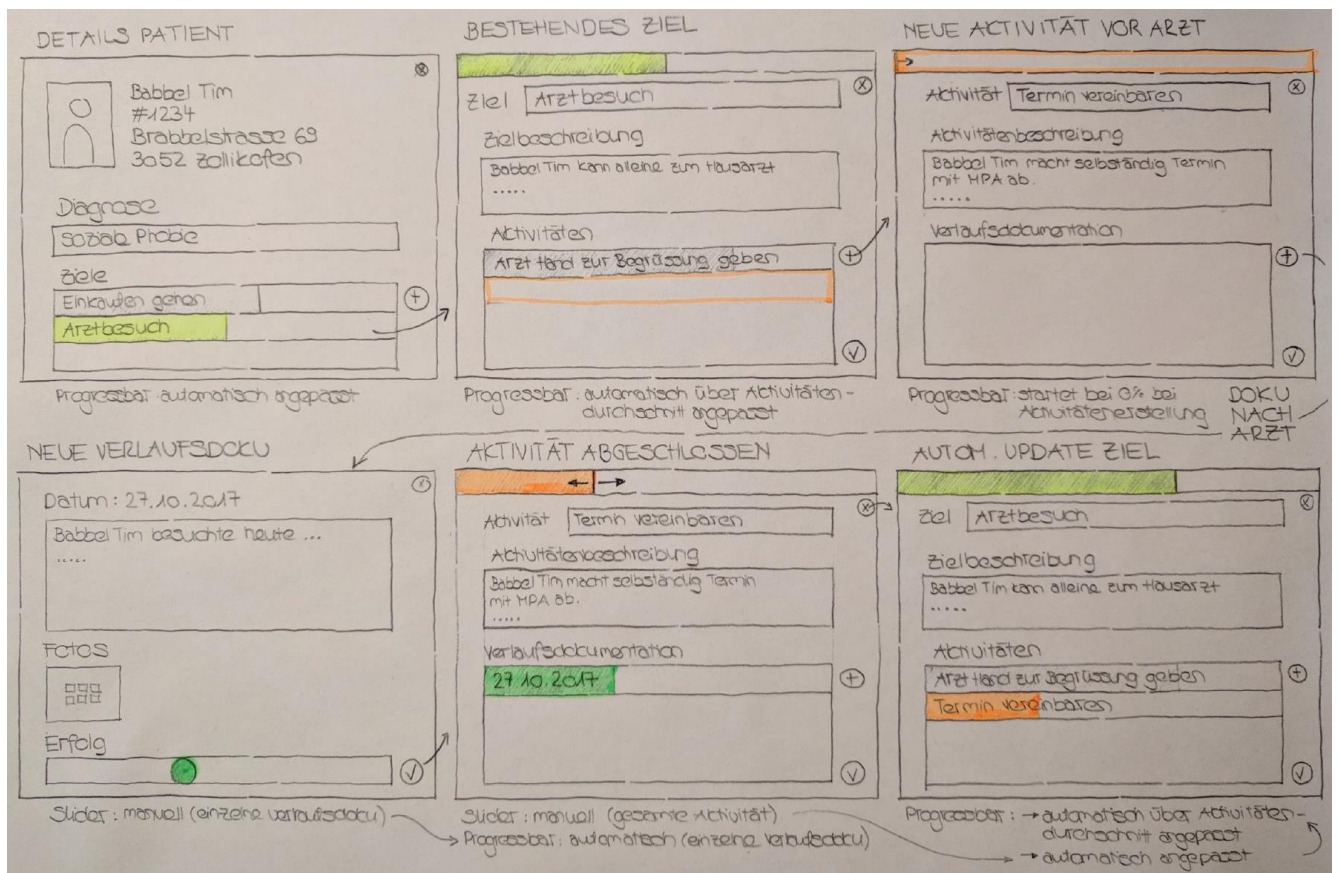 DETAILS PATIENT
Babbel Tim
#1234
Brabbelstrasse 69
3052 Zollikofen
Diagnose
Soziale Phobie
Ziele
Einkaufen gehen
+
Arztbesuch
Progressbar: automatisch angepasst
BESTEHENDES ZIEL
Ziel
Arztbesuch
Zielbeschreibung
Babbel Tim kann alleine zum Hausarzt
.....
Aktivitäten
Arzt Hand zur Begrüssung geben
+
Progressbar: automatisch über Aktivitäten-
durchschnitt angepasst
NEUE AKTIVITÄT VOR ARZT
Aktivität
Termin vereinbaren
Aktivitätenbeschreibung
Babbel Tim macht selbständig Termin
mit MPA ab.
.....
Verlaufsdokumentation
+
Progressbar: startet bei 0% bei
Aktivitätenerstellung
DOKU
NACH
ARZT
NEUE VERLAUFSDOKU
Datum: 27.10.2017
Babbel Tim besuchte heute ...
.....
Fotos
Erfolg
Slider: manuell (einzelne Verlaufsdoku)
AKTIVITÄT ABGESCHLOSSEN
Aktivität
Termin vereinbaren
Aktivitätenbeschreibung
Babbel Tim macht selbständig Termin
mit MPA ab.
.....
Verlaufsdokumentation
27.10.2017
+
Slider: manuell (gesamte Aktivität)
Progressbar: automatisch (einzelne Verlaufsdoku)
AUTOM. UPDATE ZIEL
Ziel
Arztbesuch
Zielbeschreibung
Babbel Tim kann alleine zum Hausarzt
.....
Aktivitäten
Arzt Hand zur Begrüssung geben
+
Termin vereinbaren
Progressbar: → automatisch über Aktivitäten-
durchschnitt angepasst
→ automatisch angepasst